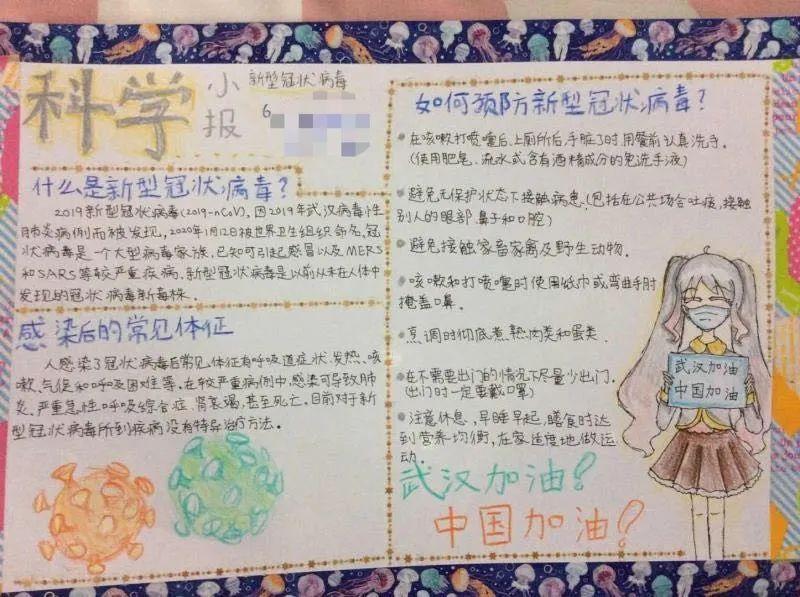 科学
小报
新型冠状病毒
6
什么是新型冠状病毒?
2019新型冠状病毒(2019-nCoV),因2019年武汉病毒性
肺炎病例而被发现,2020年1月12日被世界卫生组织命名,冠
状病毒是一个大型病毒家族,已知可引起感冒以及MERS
和SARS等较严重疾病,新型冠状病毒是以前从未在人体中
发现的冠状病毒新毒株.
感染后的常见体征
人感染了冠状病毒后常见体征有呼吸道症状、发热、咳
嗽、气促和呼及困难等,在较严重病例中,感染可导致肺
炎、严重急性呼吸综合症、肾衰竭,甚至死亡.目前对于新
型冠状病毒所到疾病没有特异治疗方法。
如何预防新型冠状病毒?
在咳嗽打喷嚏后、上厕所后、手脏了时、用餐前认真洗手.
(使用肥皂、流水或含有酒精成分的免洗手液)
避免无保护状态下接触病患.(包括在公共场合吐痰,接触
别人的眼部鼻子和口腔)
避免接触家畜家禽及野生动物.
咳嗽和打喷嚏时使用纸巾或弯曲手肘
掩盖口鼻.
烹调时彻底煮熟肉类和蛋类.
在不需要出门的情况下尽量少出门.
(出门时一定要戴口罩)
注意休息,早睡早起,膳食时达
到营养均衡,在家适度地做运
动.
武汉加油
中国加油
武汉加油!
中国加油!